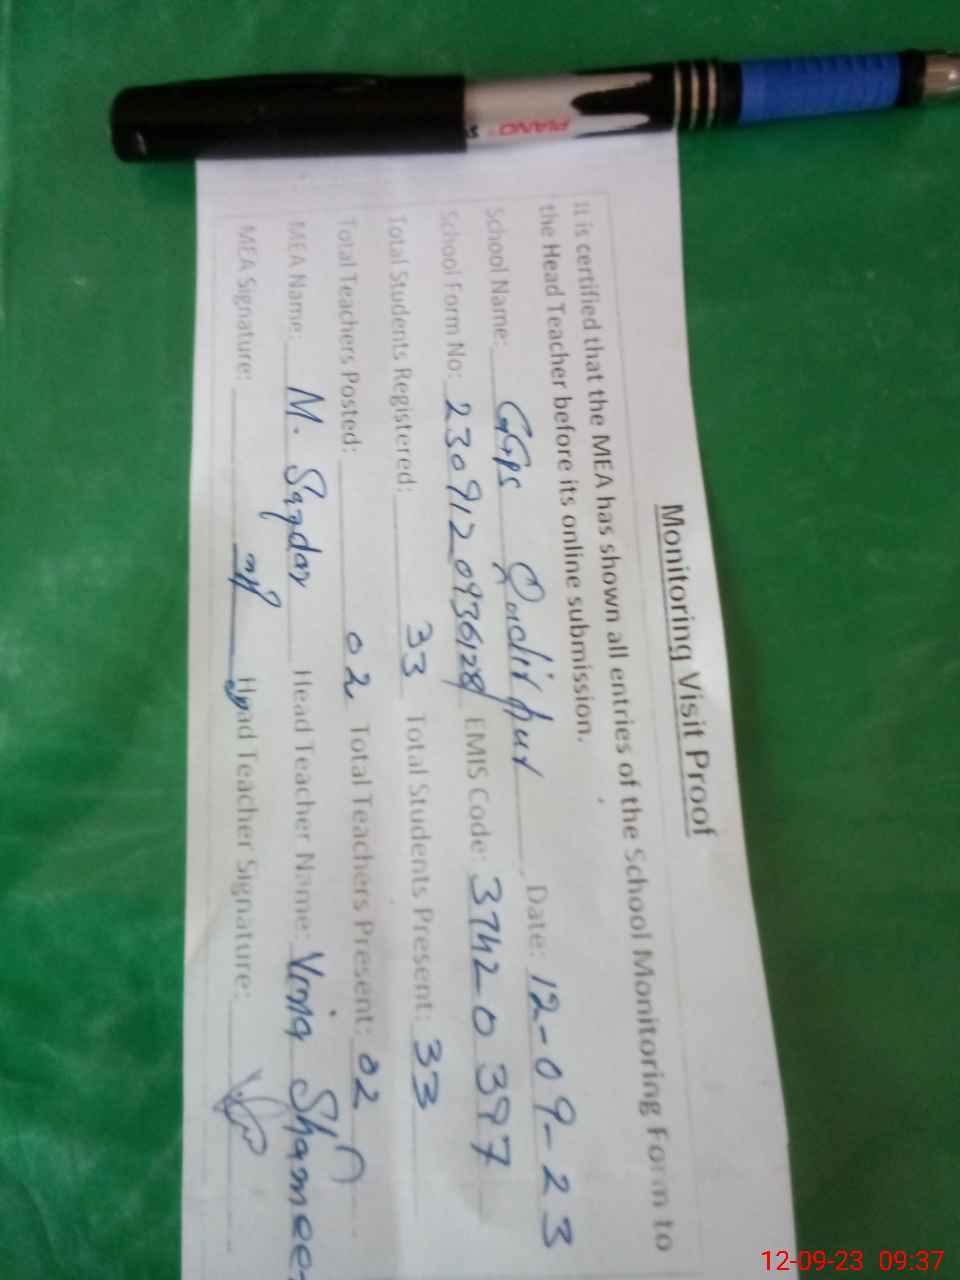 PIANO
Monitoring Visit Proof
It is certified that the MEA has shown all entries of the School Monitoring Form to
the Head Teacher before its online submission.
School Name: GGPS Qadir pur Date: 12-09-23
School Form No: 230912093628 EMIS Code: 37420397
Total Students Registered: 33 Total Students Present: 33
Total Teachers Posted: 02 Total Teachers Present: 02
MEA Name: M. Safdar Head Teacher Name: Shamee
MEA Signature: Head Teacher Signature:
12-09-23 09:37